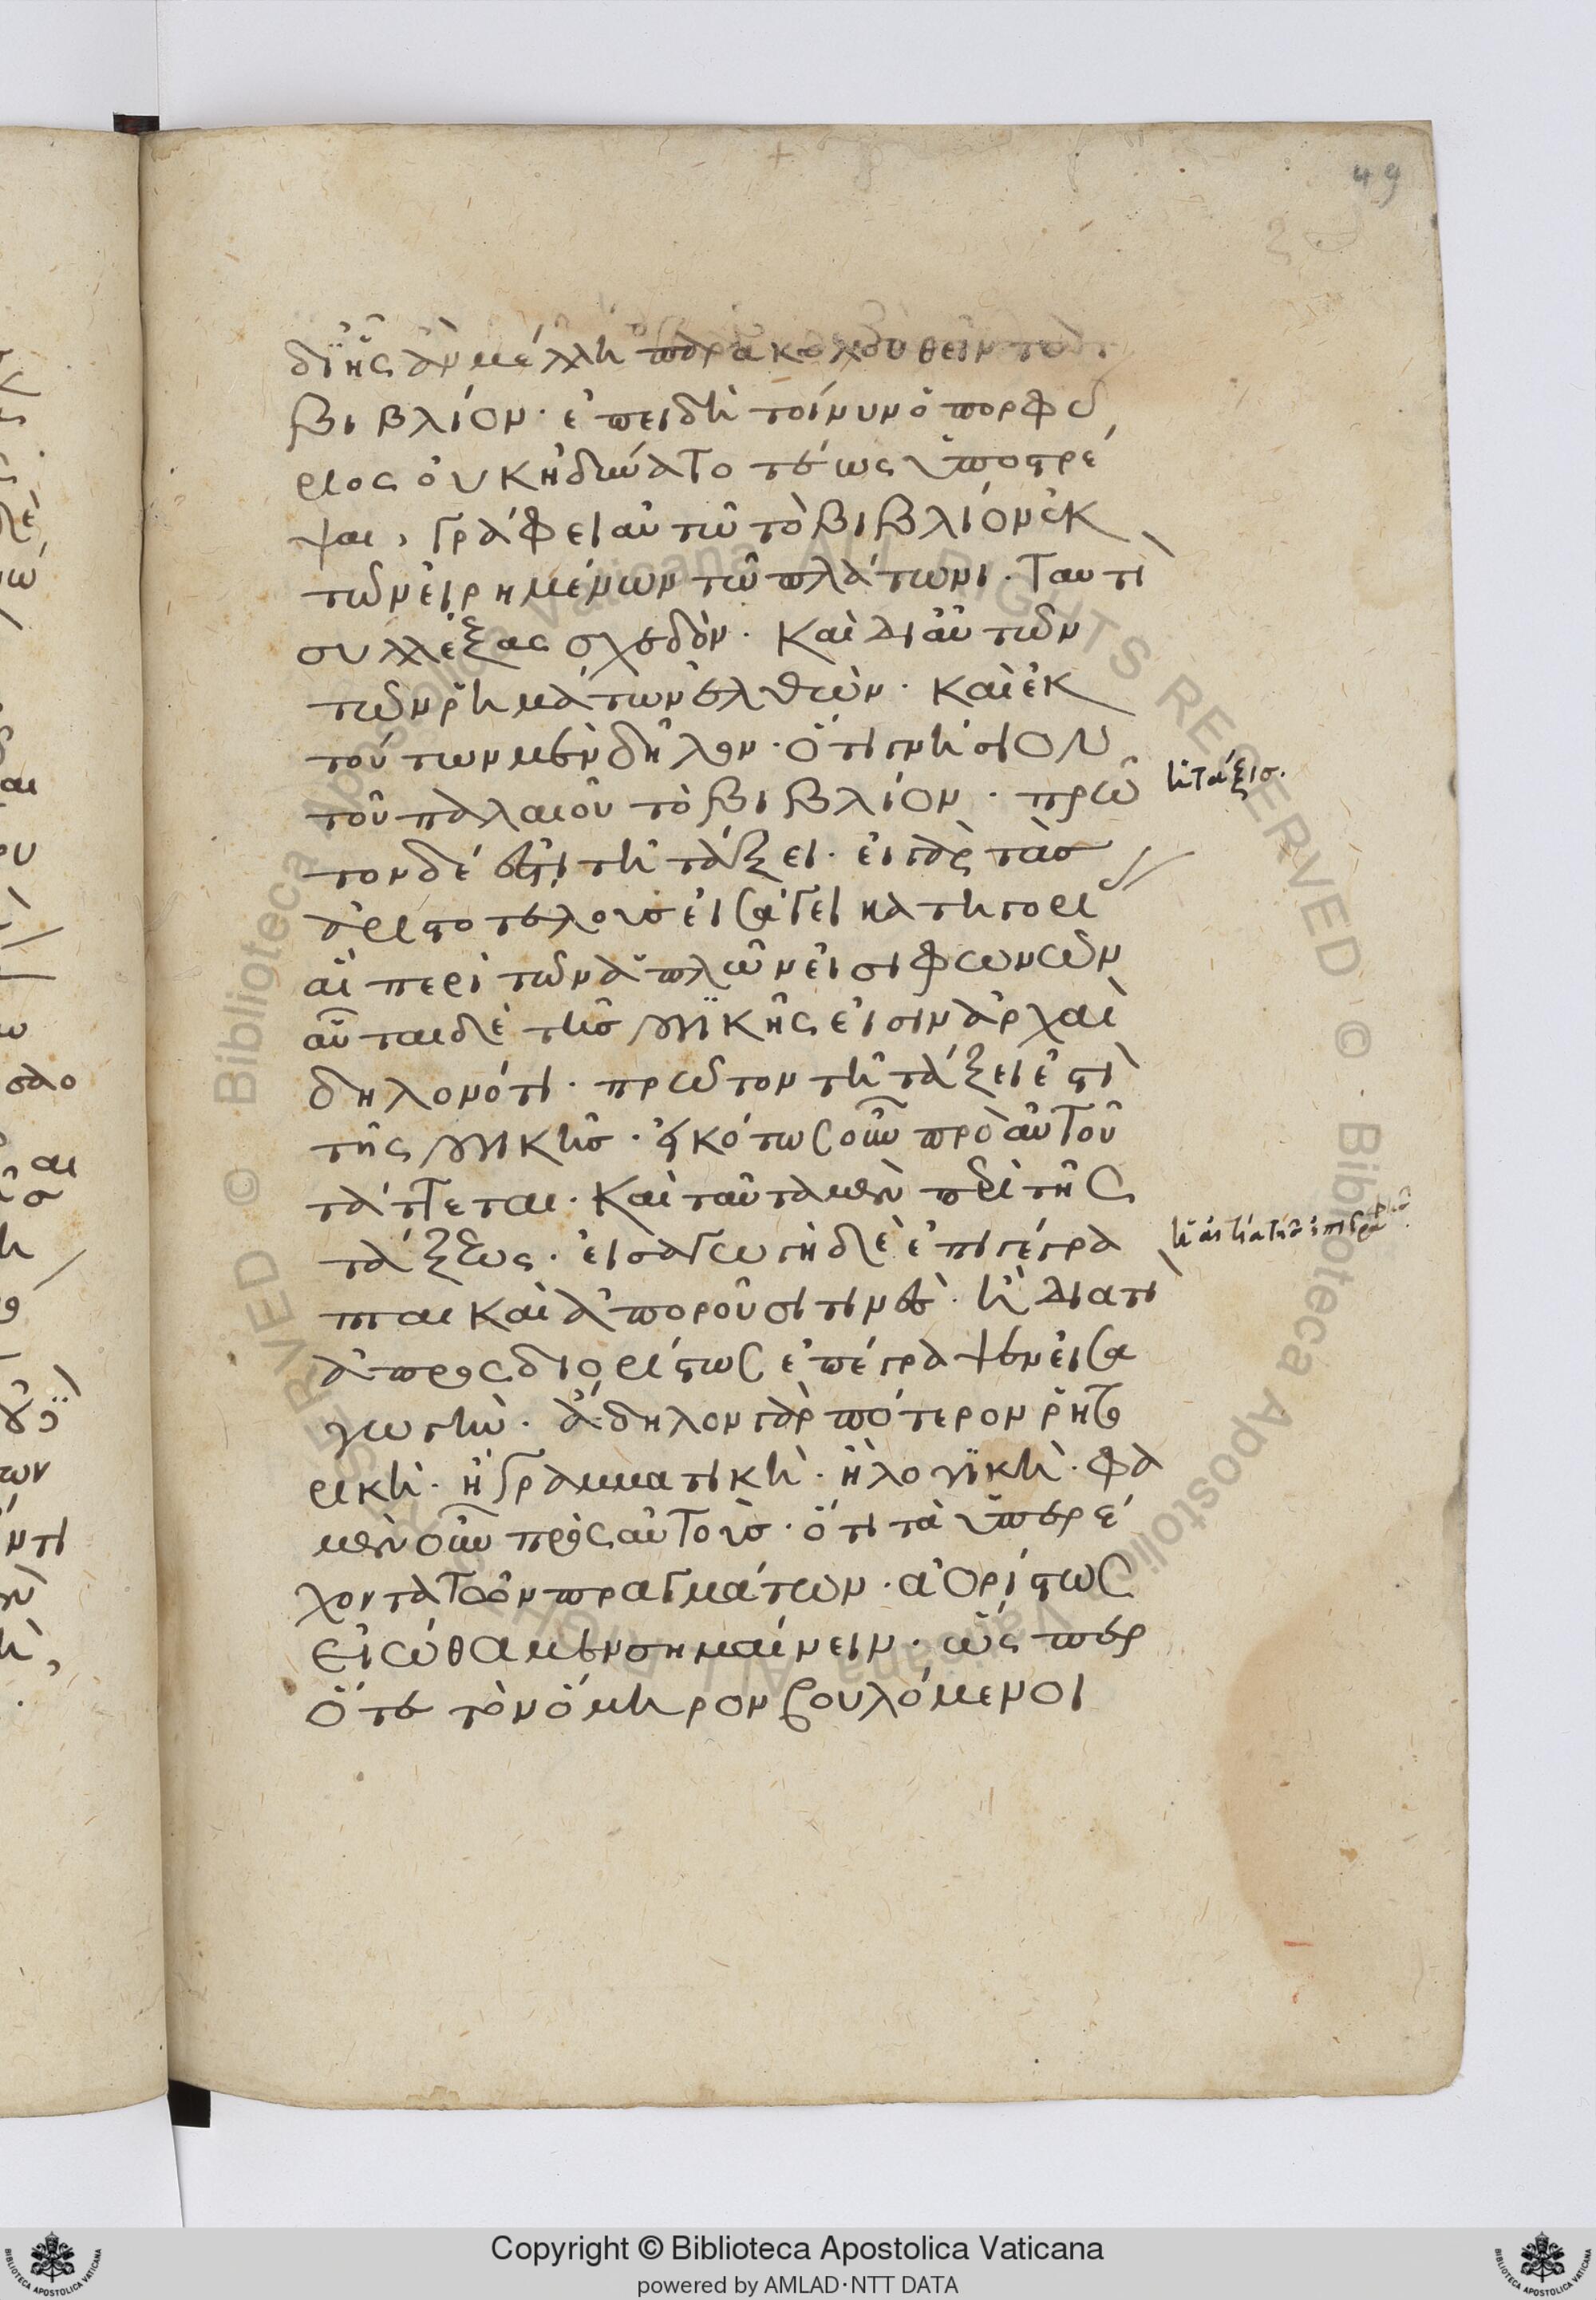 49
δι' ἧς ἂν μέλλη παρακολουθεῖν τῶ
βιβλίον· ἐπειδὴ τοίνυν ὁ πορφύ
ριος οὐκ ἠδύνατο τέως ὑποστρέ
ψαι, γράφει αὐτῶ τὸ βιβλίον ἐκ
τῶν εἰρημένων τῶ πλάτωνι. ταυτὶ
συλλέξας σχεδὸν. καὶ δι αὐτῶν
τῶν ῥημάτων ἐλθὼν. καὶ ἐκ
τούτων μὲν δῆλον. ὅτι γνήσιον
τοῦ παλαιοῦ τὸ βιβλίον. πρῶ
τον δέ ἐστι τῆ τάξει. εἰ γὰρ τὰσ
ἀριστοτέλουσ εἰσάγει κατηγορί
αἱ περὶ τῶν ἁπλῶν εἰσι φωνῶν
αὗται δὲ τῆσ λογικῆς εἰσιν ἀρχαὶ
δηλονότι. πρῶτον τῆ τάξει ἐστὶ
τῆς λογικῆσ. εἰκότως οὖν πρὸ αὐτοῦ
τάττεται. καὶ ταῦτα μὲν περὶ τῆς
τάξεως. εἰσαγωγὴ δὲ ἐπιγέγρα
πται καὶ ἀποροῦσι τινὲς. ἢ διατί
ἀπροσδιορίστως ἐπέγραψεν εἰσα
γωγὴν. ἄδηλον γὰρ πότερον ῥητο
ρικὴ. ἢ γραμματικὴ. ἢ λογικὴ. φα
μὲν οὖν πρὸς αὐτοὺσ. ὅτι τὰ ὑπερέ
χοντα τῶν πραγμάτων. ἀορίστως
εἰώθαμεν σημαίνειν. ὥς περ
ὅτε τὸν ὅμηρον βουλόμενοι
ἡ τάξισ.
ἡ αἰτία τῆσ ἐπιγραφῆσ.
© Biblioteca Apostolica Vaticana ALL RIGHTS RESERVED
Copyright © Biblioteca Apostolica Vaticana
powered by AMLAD·NTT DATA